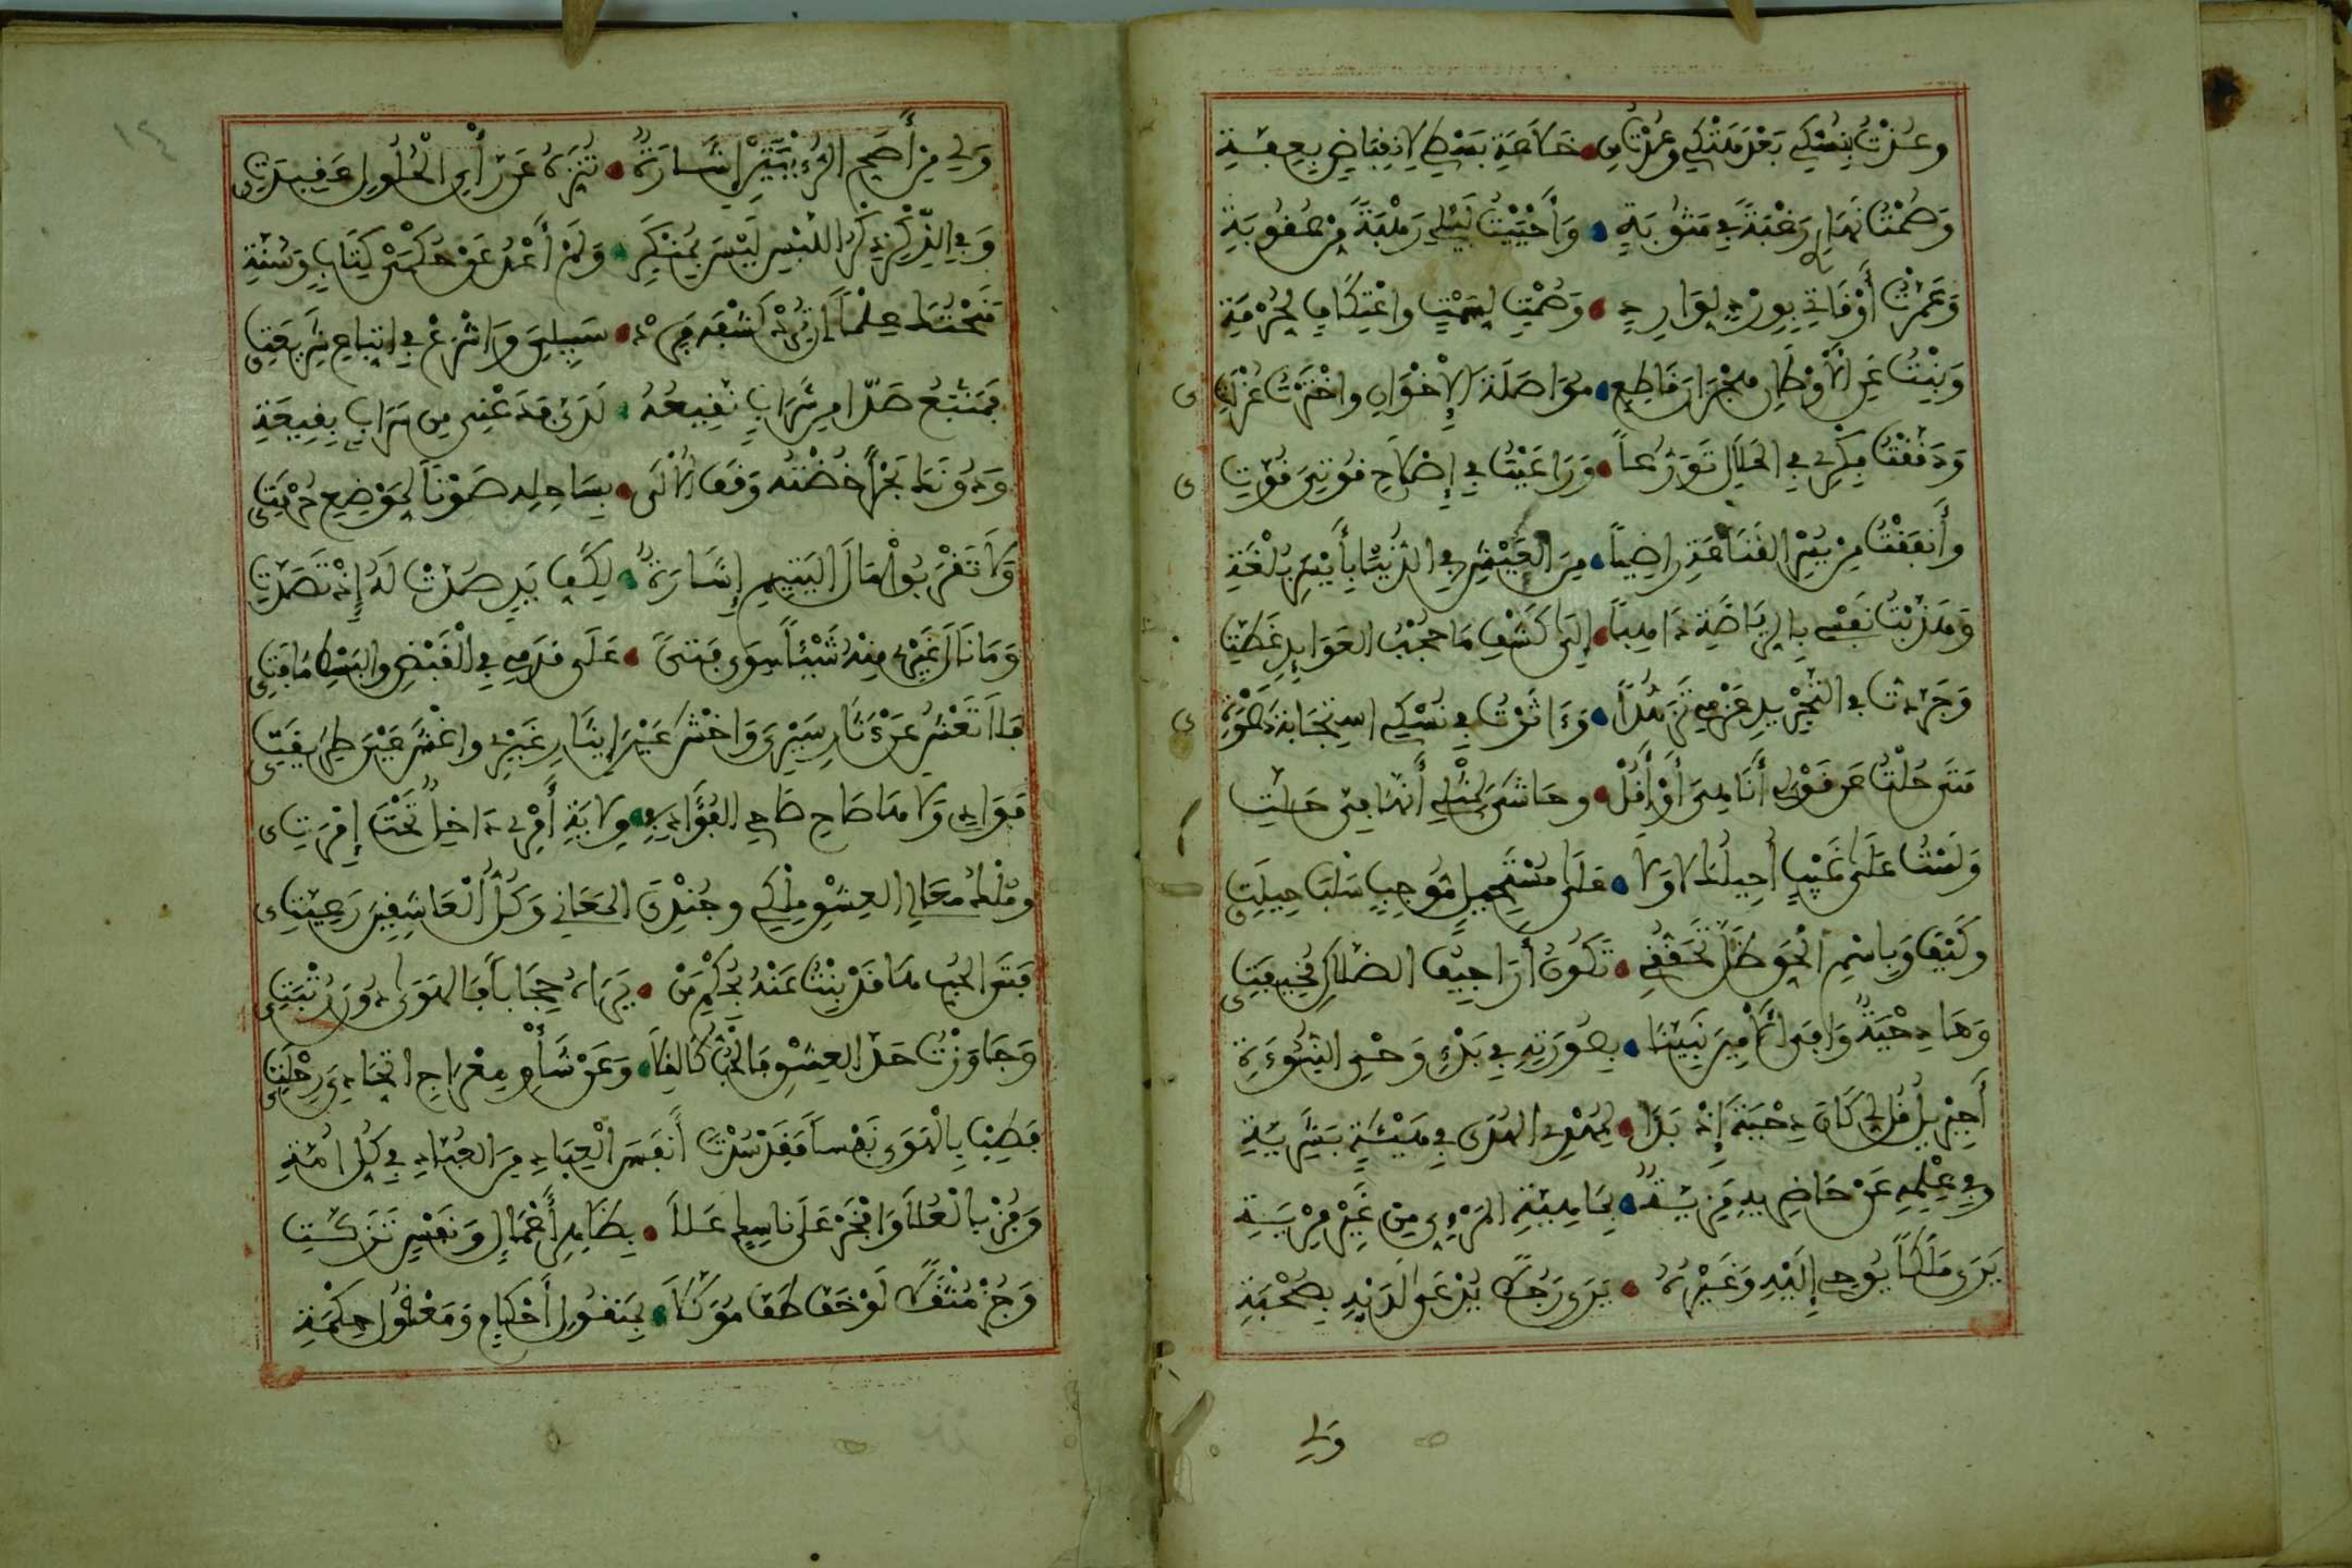 وعُدْتُ بِنُسْكِي بَعْدَ هَتْكِي وعُدْتُ مِن خَلَاعَةِ بَسْطِي لِانقِبَاضٍ بِعِفَّةِ
وَصُمْتُ نَهَارِي رَغْبَةً فِي مَثُوبَةٍ وَأَحْيَيْتُ لَيْلِي رَهْبَةً مِن عُقُوبَةِ
وَعَمَّرْتُ أَوْقَاتِي بِوِرْدٍ لِوَارِدٍ وَصُمْتٍ لِسَمْتٍ واعْتِكَافٍ لِحُرْمَةِ
وَبِنْتُ عَنِ الْأَوْطَانِ هِجْرَانَ قَاطِعٍ مُوَاصَلَةَ الْإِخْوَانِ واخْتَرْتُ عُزْلَتِي
وَدَقَّقْتُ فِكْرِي فِي الحَلَالِ تَوَرُّعاً وَرَاعَيْتُ فِي إِصْلَاحِ قُوتِيَ قُوَّتِي
وأَنفَقْتُ مِن يُسْرِ القَنَاعَةِ رَاضِياً مِنَ العَيْشِ فِي الدُّنْيَا بِأَيْسَرِ بُلْغَةِ
وَهَذَّبْتُ نَفْسِي بِالرِّيَاضَةِ ذَاهِباً إِلَى كَشْفِ مَا حُجْبُ العَوَايِدِ غَطَّتِ
وَجَرَّدْتُ فِي التَّجْرِيدِ عَزْمِي تَزَهُّداً وَءَاثَرْتُ فِي نُسْكِي اسْتِجَابَةَ دَعْوَتِي
مَتَى حُلْتُ عَن قَوْلِي أَنَا هِيَ أَوْ أَقُلْ وحَاشَى لِمِثْلِي أَنَّهَا فِيَّ حَلَّتِ
وَلَسْتُ عَلَى غَيْبٍ أُحِيلُكَ لَا وَلَا عَلَى مُسْتَحِيلٍ مُوجِبٍ سَلْبَ حِيلَتِي
وكَيْفَ وَبِاسْمِ الْحَقِّ ظَلَّ تَحَقُّقِي تَكُونُ أَرَاجِيفُ الضَّلَالِ مُخِيفَتِي
وَهَا دِحْيَةٌ وَافَى الْأَمِينَ نَبِيَّنَا بِصُورَتِهِ فِي بَدْءِ وَحْيِ النُّبُوءَةِ
أَجِبْرِيلُ قُل لِي كَانَ دِحْيَةَ إِذْ بَدَا لِمُهْدِي الهُدَى فِي هَيْئَةٍ بَشَرِيَّةِ
وفِي عِلْمِهِ عَنْ حَاضِرِيهِ مَزِيَّةٌ بِمَاهِيَّةِ المَرْءِيِّ مِن غَيْرِ مِرْيَةِ
يَرَى مَلَكاً يُوحِي إِلَيْهِ وَغَيْرُهُ يَرَى رَجُلًا يُدْعَى لَدَيْهِ بِصُحْبَةِ
وَلِي
وَلِي مِن أَصَحِّ الرُّؤْيَتَيْنِ إِشَارَةٌ تُنَزِّهُ عَن رَأْيِ الْحُلُولِ عَقِيدَتِي
وَفِي الذِّكْرِ ذِكْرُ اللَّبْسِ لَيْسَ بِمُنكَرٍ وَلَمْ أَعْدُ عَنْ حُكْمَيْ كِتَابٍ وَسُنَّةِ
مَنَحْتُكَ عِلْماً إِن تُرِدْ كَشْفَهُ فَرِدْ سَبِيلِيَ وَاشْرَعْ فِي اتِّبَاعِ شَرِيعَتِي
فَمَنْبَعُ صَدَّا مِن شَرَابٍ نَقِيعُهُ لَدَيَّ فَدَعْنِي مِن سَرَابٍ بِقِيعَةِ
وَدُونَكَ بَحْراً خُضْتُهُ وَقَفَ الْأُلَى بِسَاحِلِهِ صَوْناً لِمَوْضِعِ حُرْمَتِي
وَلَا تَقْرَبُوا مَالَ اليَتِيمِ إِشَارَةٌ لِكَفِّ يَدٍ صُدَّتْ لَهُ إِذْ تَصَدَّتِ
وَمَا نَالَ غَيْرِي مِنْهُ شَيْئاً سِوَى فَتىً عَلَى قَدَمِي فِي الْقَبْضِ والبَسْطِ مَا فَتِي
فَلَا تَعْشُ عَنْ ءَاثَارِ سَيْرِيَ وَاخْشَ غَيْنَ إِيثَارِ غَيْرِي واغْشَ عَيْنَ طَرِيقَتِي
فُؤَادِيَ وَلَاهَا صَاحِ صَاحِي الفُؤَادِ فِي وِلَايَةِ أَمْرِي دَاخِلٌ تَحْتَ إِمْرَتِي
ومُلْكُ مَعَالِي العِشْقِ مِلْكِي وجُنْدِيَ المَعَانِي وَكُلُّ الْعَاشِقِينَ رَعِيَّتِي
فَتَى الحُبِّ هَا قَدْ بِنْتُ عَنْهُ بِحُكْمِ مَنْ يَرَاهُ حِجَاباً فَالهَوَى دُونَ رُتْبَتِي
وَجَاوَزْتُ حَدَّ العِشْقِ فَالْحُبُّ كَالقِلَا وَعَنْ شَأْوِ مِعْرَاجِ اتِّحَادِيَ رِحْلَتِي
فَطِبْ بِالْهَوَى نَفْساً فَقَدْ سُدْتَ أَنفَسَ الْعِبَادِ مِنَ العُبَّادِ فِي كُلِّ أُمَّةِ
وَفُزْ بِالْعُلَا وَافْخَرْ عَلَى نَاسِكٍ عَلَا بِظَاهِرِ أَعْمَالٍ وَنَفْسٍ تَزَكَّتِ
وَجُزْ مُثْقَلًا لَوْ خَفَّ طَفَّ مُوَكَّلَا بِمَنقُولِ أَحْكَامٍ وَمَعْقُولِ حِكْمَةِ